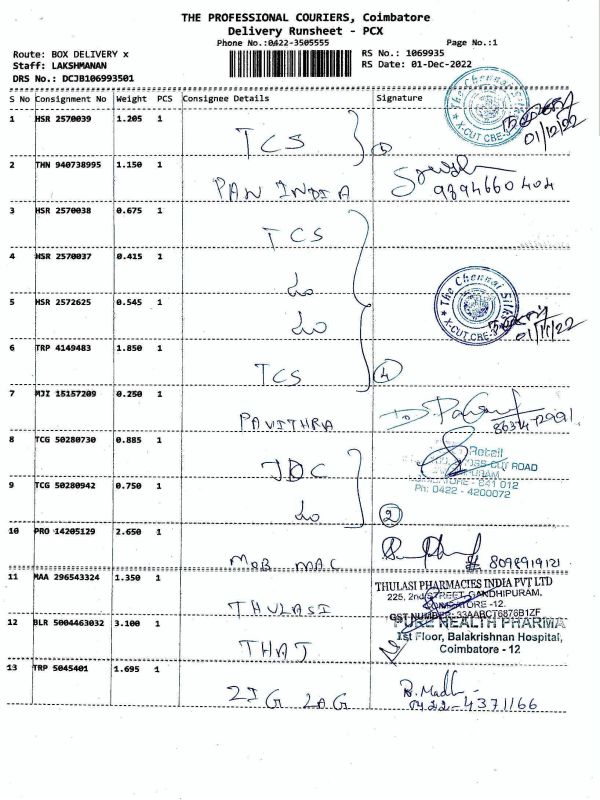 THE PROFESSIONAL COURIERS, Coimbatore
Delivery Runsheet - PCX
Phone No.:0422-3505555 Page No.:1
Route: BOX DELIVERY x RS No.: 1069935
Staff: LAKSHMANAN RS Date: 01-Dec-2022
DRS No.: DCJB106993501
S No Consignment No Weight PCS Consignee Details Signature
The Chennai Silks
X-CUT CBE
01/12/22
1 HSR 2570039 1.205 1 TCS
2 THN 940738995 1.150 1 PAN INDIA 9894660404
3 HSR 2570038 0.675 1 TCS
4 HSR 2570037 0.415 1 Do
5 HSR 2572625 0.545 1 Do
The Chennai Silks
X-CUT.CBE
6 TRP 4149483 1.850 1 TCS 4
7 MJI 15157209 0.250 1 PAVITHRA
8 TCG 50280730 0.885 1 JDC
Retail
ROAD
641 012
Ph: 0422 - 4200072
9 TCG 50280942 0.750 1 Do 2
10 PRO 14205129 2.650 1 MOB MAC 8098919121
11 MAA 296543324 1.350 1 THULASI
THULASI PHARMACIES INDIA PVT LTD
225, 2nd STREET, GANDHIPURAM,
COIMBATORE -12.
GST NUMBER: 33AABCT6876B1ZF
12 BLR 5004463032 3.100 1 THAT
PURE HEALTH PHARMA
1st Floor, Balakrishnan Hospital,
Coimbatore - 12
13 TRP 5045401 1.695 1 ZIG ZAG
0422-4371166